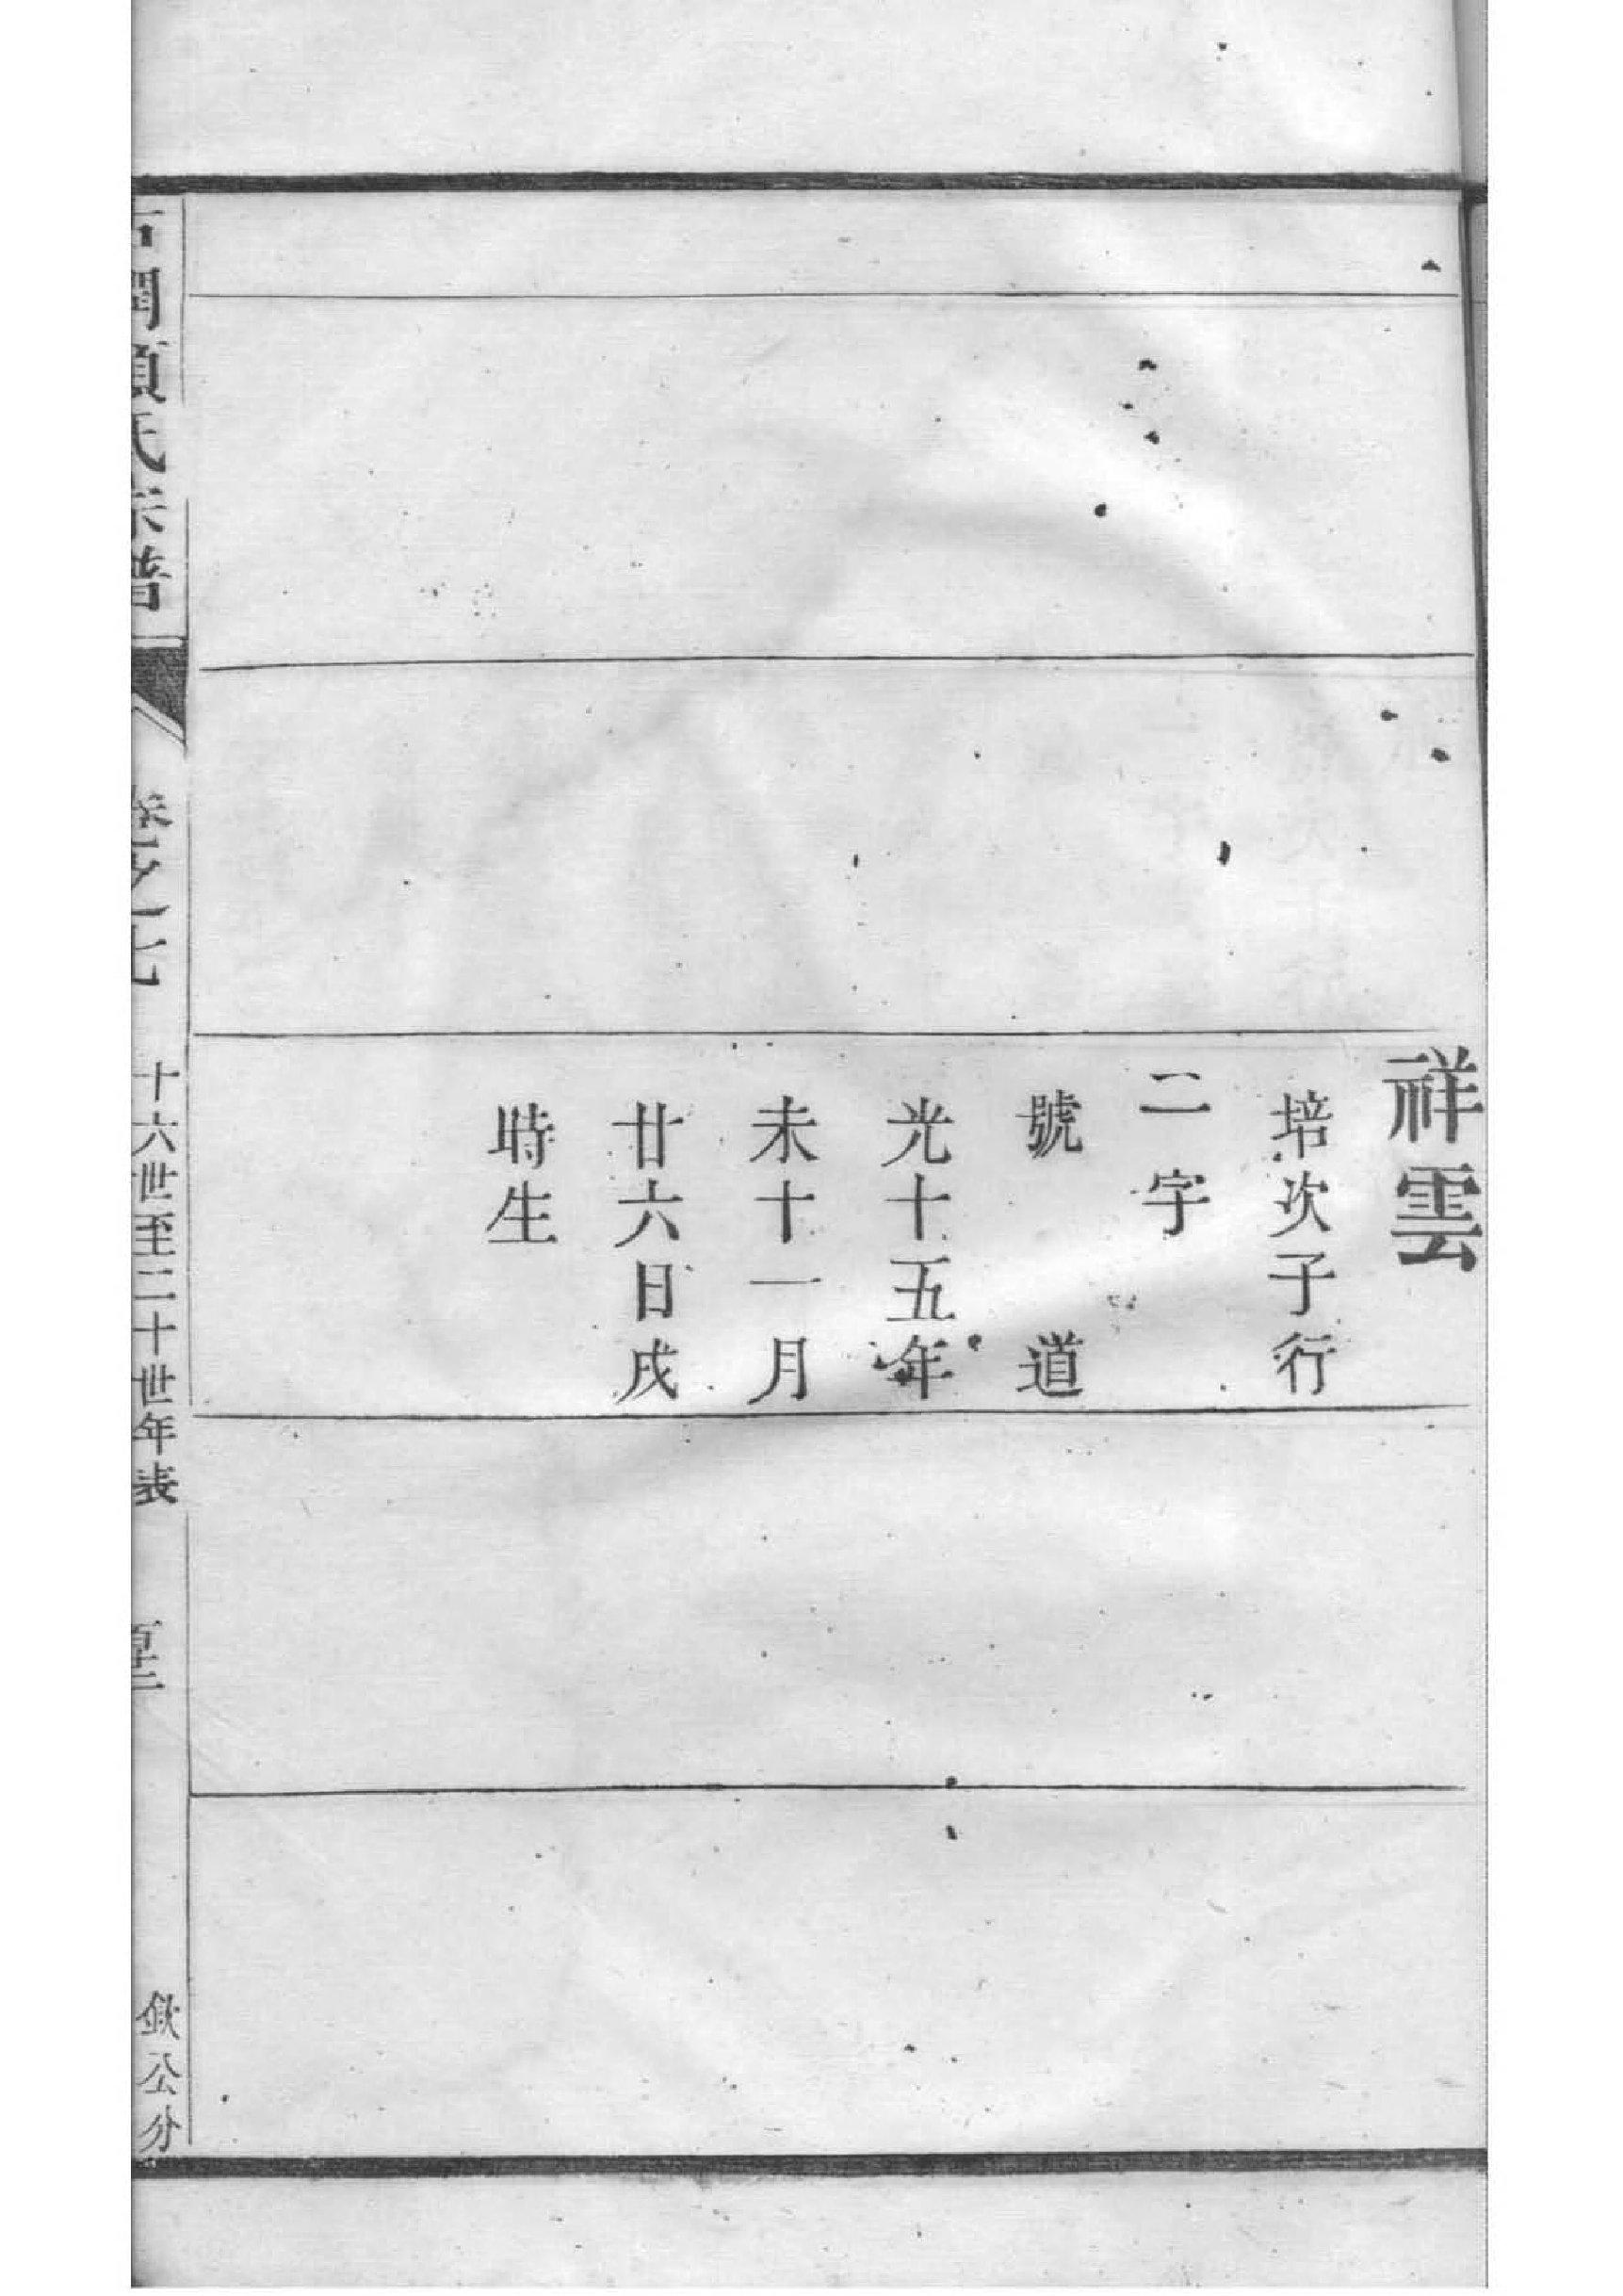 祥雲
培次子行
二字
號　道
光十五年
未十一月
廿六日戌
時生
氏宗譜
卷之十七
十六世至二十世年表
公分